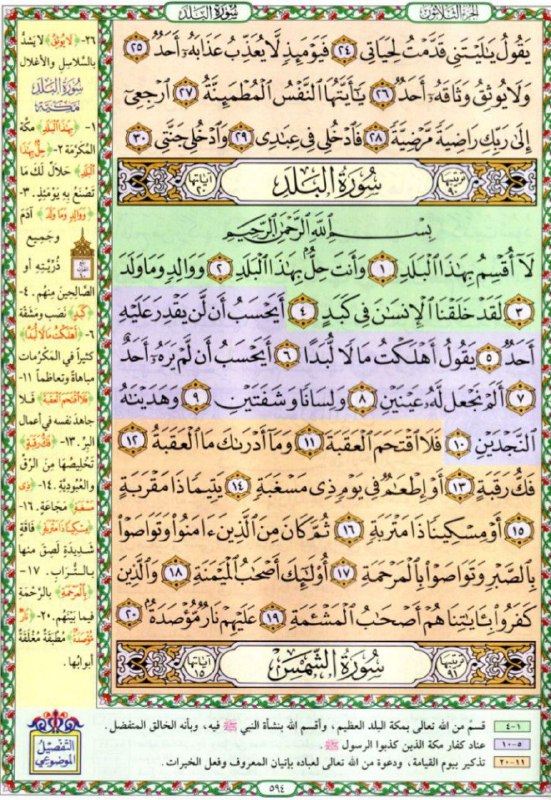 الجزء الثلاثون
سورة البلد
يَقُولُ يَـٰلَيْتَنِى قَدَّمْتُ لِحَيَاتِى ٢٤ فَيَوْمَئِذٍ لَّا يُعَذِّبُ عَذَابَهُۥٓ أَحَدٌ ٢٥
وَلَا يُوثِقُ وَثَاقَهُۥٓ أَحَدٌ ٢٦ يَـٰٓأَيَّتُهَا ٱلنَّفْسُ ٱلْمُطْمَئِنَّةُ ٢٧ ٱرْجِعِىٓ
إِلَىٰ رَبِّكِ رَاضِيَةً مَّرْضِيَّةً ٢٨ فَٱدْخُلِى فِى عِبَـٰدِى ٢٩ وَٱدْخُلِى جَنَّتِى ٣٠
ترتيبها ٩٠ سُورَةُ البَلَدِ آياتها ٢٠
بِسْمِ ٱللَّهِ ٱلرَّحْمَـٰنِ ٱلرَّحِيمِ
لَآ أُقْسِمُ بِهَـٰذَا ٱلْبَلَدِ ١ وَأَنتَ حِلٌّۢ بِهَـٰذَا ٱلْبَلَدِ ٢ وَوَالِدٍ وَمَا وَلَدَ
٣ لَقَدْ خَلَقْنَا ٱلْإِنسَـٰنَ فِى كَبَدٍ ٤ أَيَحْسَبُ أَن لَّن يَقْدِرَ عَلَيْهِ
أَحَدٌ ٥ يَقُولُ أَهْلَكْتُ مَالًا لُّبَدًا ٦ أَيَحْسَبُ أَن لَّمْ يَرَهُۥٓ أَحَدٌ
٧ أَلَمْ نَجْعَل لَّهُۥ عَيْنَيْنِ ٨ وَلِسَانًا وَشَفَتَيْنِ ٩ وَهَدَيْنَـٰهُ
ٱلنَّجْدَيْنِ ١٠ فَلَا ٱقْتَحَمَ ٱلْعَقَبَةَ ١١ وَمَآ أَدْرَىٰكَ مَا ٱلْعَقَبَةُ ١٢
فَكُّ رَقَبَةٍ ١٣ أَوْ إِطْعَـٰمٌ فِى يَوْمٍ ذِى مَسْغَبَةٍ ١٤ يَتِيمًا ذَا مَقْرَبَةٍ
١٥ أَوْ مِسْكِينًا ذَا مَتْرَبَةٍ ١٦ ثُمَّ كَانَ مِنَ ٱلَّذِينَ ءَامَنُوا۟ وَتَوَاصَوْا۟
بِٱلصَّبْرِ وَتَوَاصَوْا۟ بِٱلْمَرْحَمَةِ ١٧ أُو۟لَـٰٓئِكَ أَصْحَـٰبُ ٱلْمَيْمَنَةِ ١٨ وَٱلَّذِينَ
كَفَرُوا۟ بِـَٔايَـٰتِنَا هُمْ أَصْحَـٰبُ ٱلْمَشْـَٔمَةِ ١٩ عَلَيْهِمْ نَارٌ مُّؤْصَدَةٌۢ ٢٠
ترتيبها ٩١ سُورَةُ الشَّمْسِ آياتها ١٥
٢٦- ﴿لَا يُوثِقُ﴾ لا يَشُدُّ
بالسَّلاسِلِ والأغلال
سورة البلد
مكية
١- ﴿بِهَذَا الْبَلَدِ﴾ مكَّة
المُكَرَّمَة ٢- ﴿حِلٌّ بِهَذَا
الْبَلَدِ﴾ حَلالٌ لَكَ ما
تَصْنَعُ بِهِ يَوْمَئِذٍ. ٣-
﴿وَوَالِدٍ وَمَا وَلَدَ﴾ آدَمَ
وجَميعِ
ذُرِّيَّتِهِ أو
الصَّالِحِينَ مِنْهُم. ٤-
﴿كَبَدٍ﴾ نَصَبٍ ومَشَقَّة
٦- ﴿أَهْلَكْتُ مَالًا لُبَدًا﴾
كثيرًا في المَكْرُمات
مباهاةً وتعاظماً ١١-
﴿فَلَا اقْتَحَمَ الْعَقَبَةَ﴾ فَلا
جاهَدَ نفسه في أعمالِ
البِرِّ. ١٣- ﴿فَكُّ رَقَبَةٍ﴾
تَخْلِيصُهَا مِنَ الرِّقِّ
والعُبُودِيَّةِ. ١٤- ﴿ذِي
مَسْغَبَةٍ﴾ مَجَاعَة. ١٦-
﴿مِسْكِينًا ذَا مَتْرَبَةٍ﴾ فَاقَةٍ
شَدِيدَةٍ لَصِقَ منها
بالتُّرَاب. ١٧-
﴿بِالْمَرْحَمَةِ﴾ بالرَّحْمَةِ
فِيمَا بَيْنَهُم. ٢٠- ﴿نَارٌ
مُؤْصَدَةٌ﴾ مُطْبَقَةٌ مُغْلَقَةٌ
أبوابُها.
التفصيل الموضوعي
١-٤ قسمٌ من الله تعالى بمكة البلد العظيم، وأقسم الله بنشأة النبي ﷺ فيه، وبأنه الخالق المتفضل.
٥-١٠ عناد كفار مكة الذين كذبوا الرسول ﷺ.
١١-٢٠ تذكير بيوم القيامة، ودعوة من الله تعالى لعباده بإتيان المعروف وفعل الخيرات.
٥٩٤